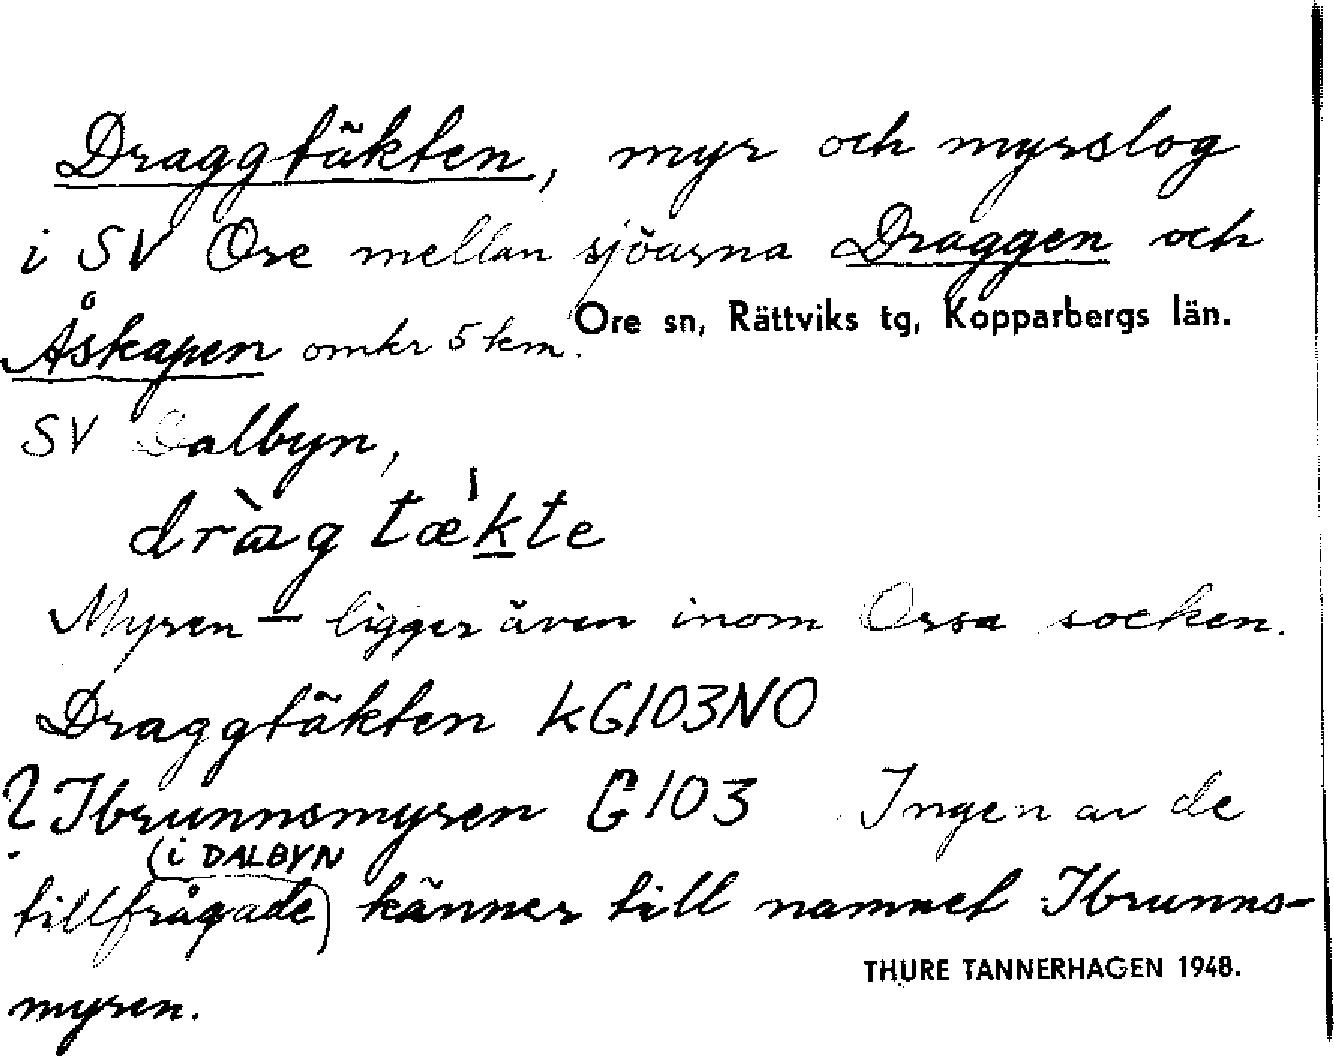 Draggtäkten, myr och myrslog
i SV Ore mellan sjöarna Draggen och
Åskapen omkr 5 km.
Ore sn, Rättviks tg, Kopparbergs län.
SV Dalbyn,
tækte
Myren – ligger även inom Orsa socken.
Draggtäkten kG103NO
? Ibrunnsmyren G103 Ingen av de
(i DALBYN
tillfrågade) känner till namnet Ibrunns-
myren.
THURE TANNERHAGEN 1948.